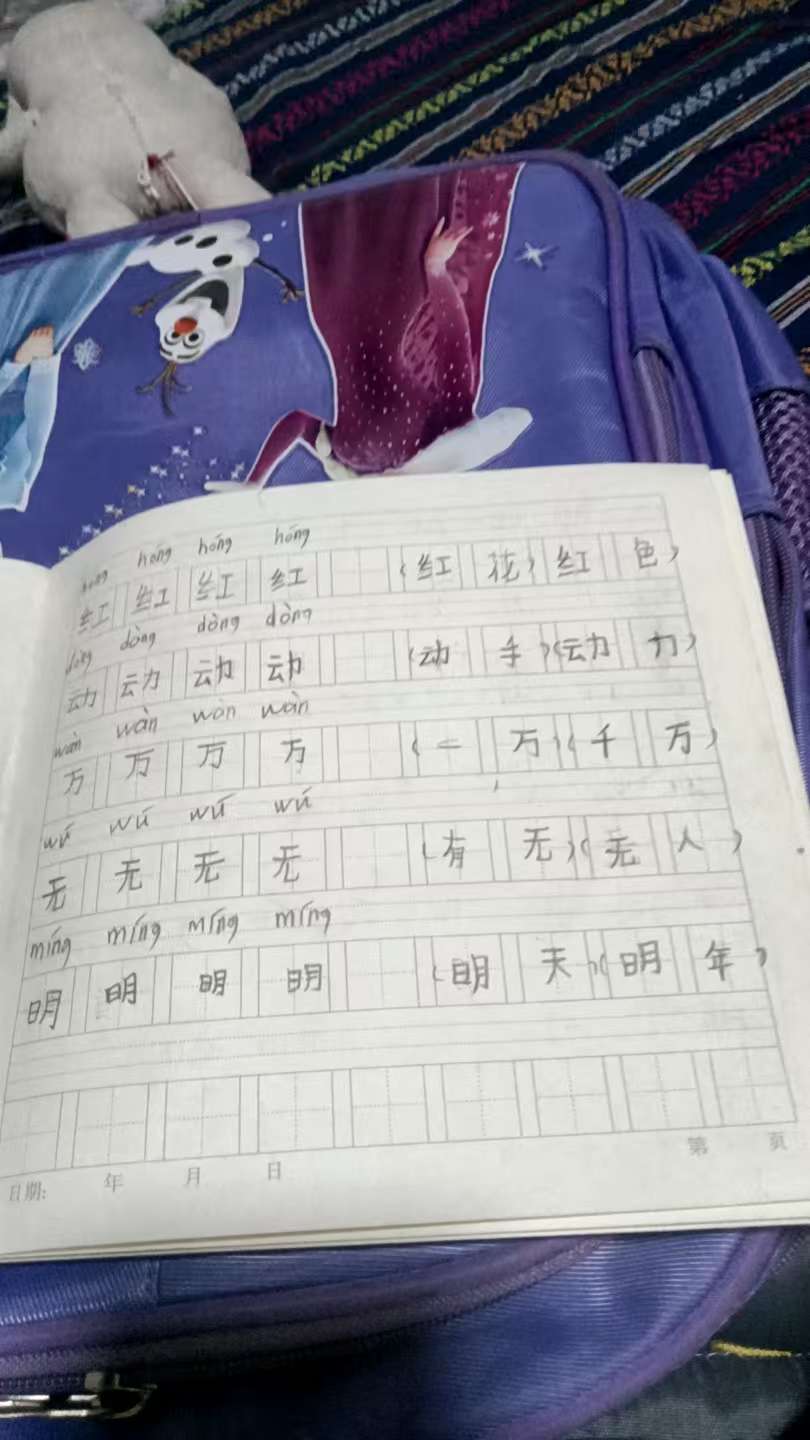 hóng hóng hóng hóng
红 红 红 红 (红 花) 红 色)
dòng dòng dòng dòng
动 动 动 动 (动 手)(动 力)
wàn wàn wàn wàn
万 万 万 万 (一 万)(千 万)
wú wú wú wú
无 无 无 无 (有 无)(无 人)
míng míng míng míng
明 明 明 明 (明 天)(明 年)
日期: 年 月 日 第 页